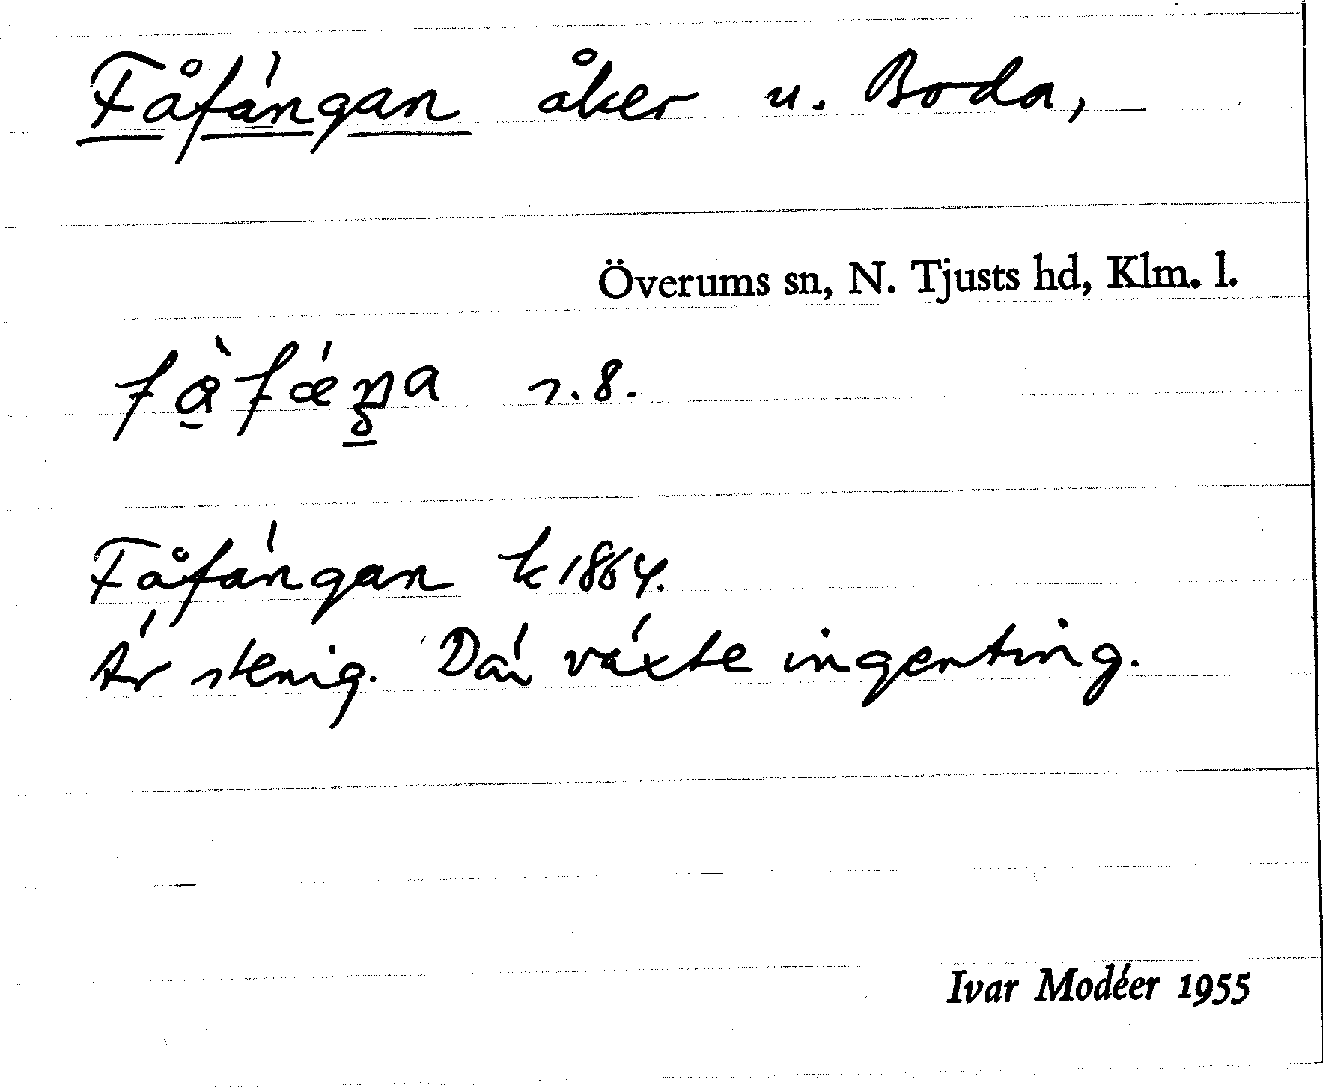 Fåfängan åker u. Boda,
Överums sn, N. Tjusts hd, Klm. l.
fåfæŋa n.8.
Fåfängan k 1864.
Är stenig. Där växte ingenting.
Ivar Modéer 1955